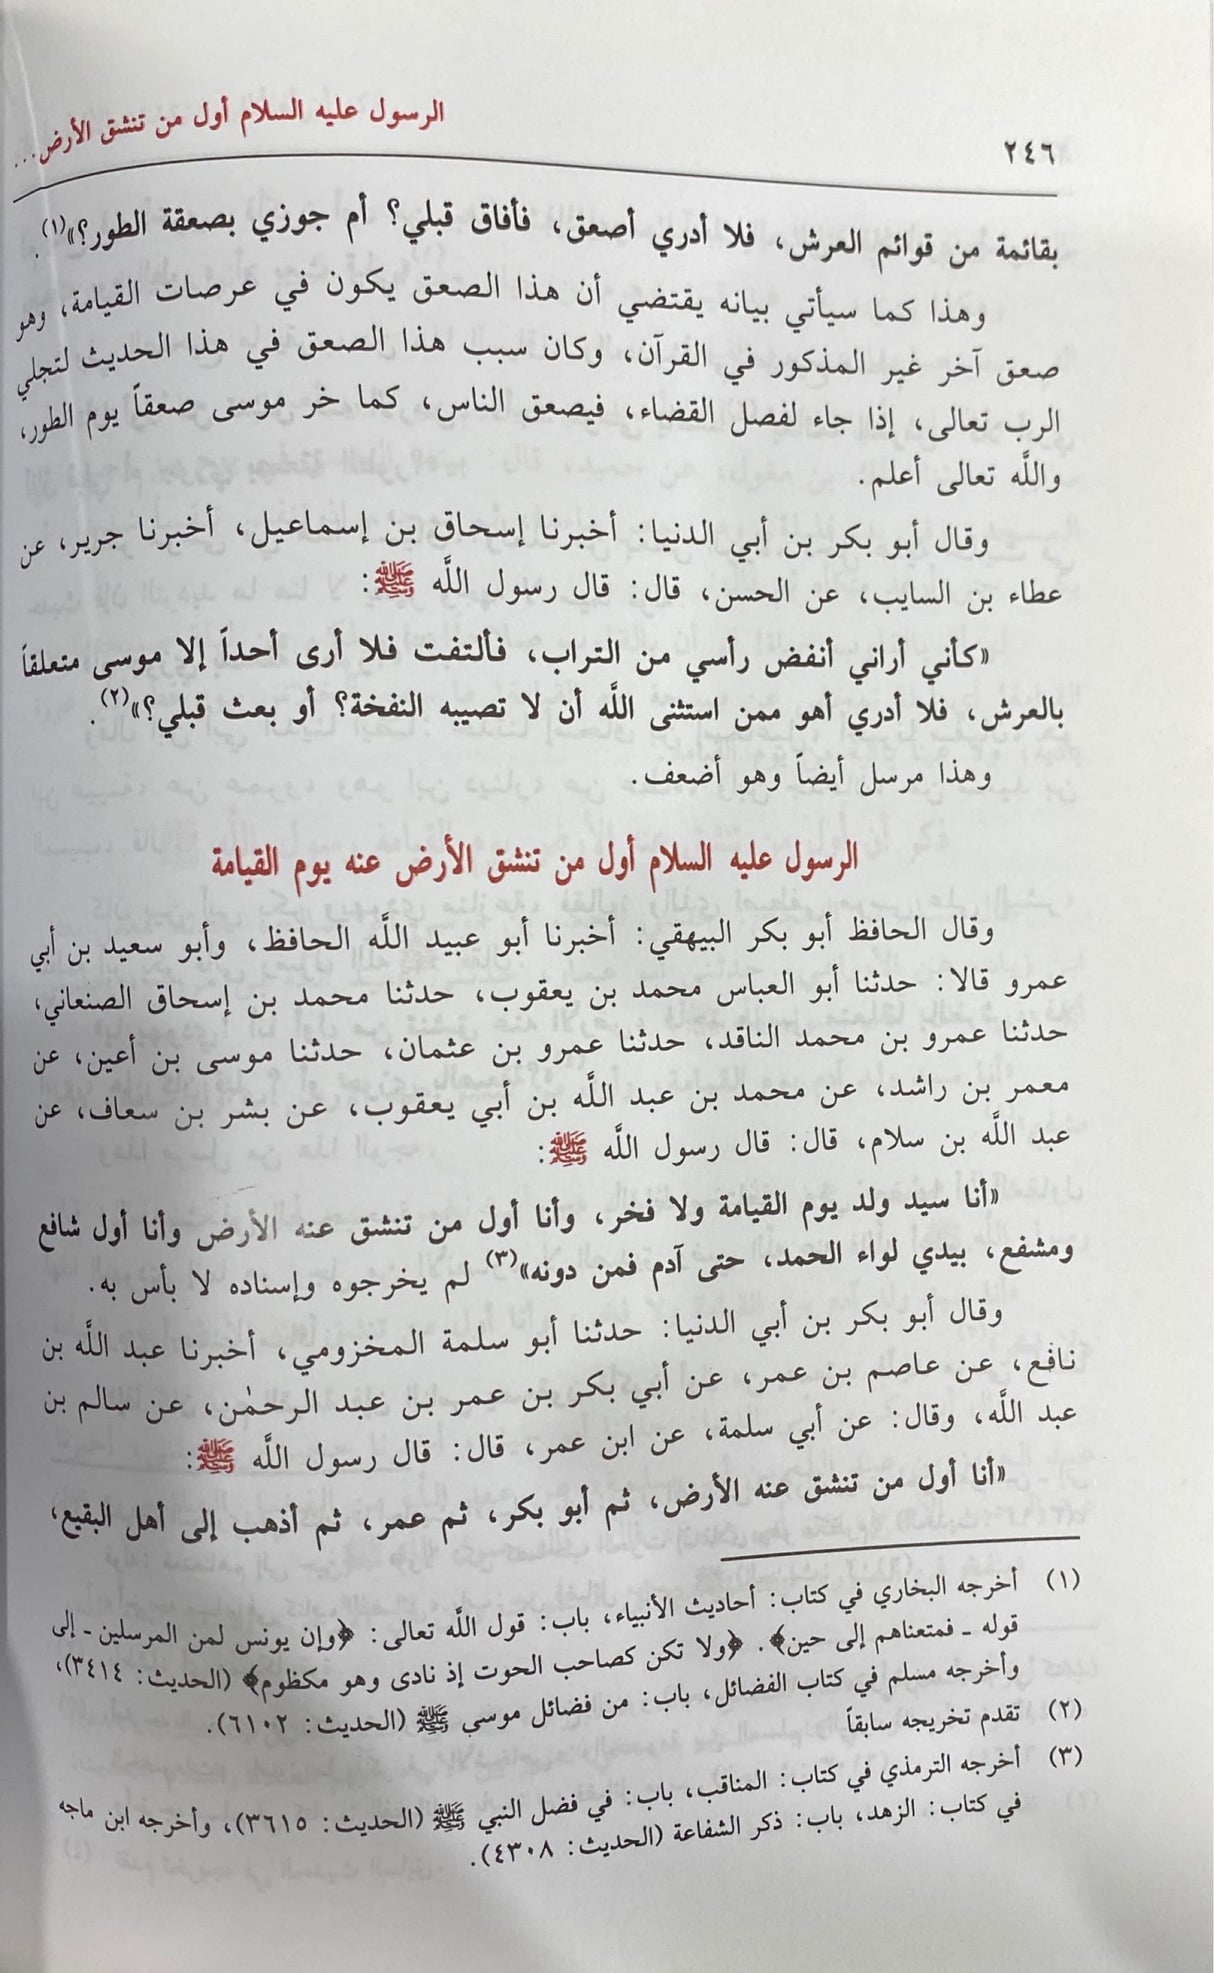 الرسول عليه السلام أول من تنشق الأرض...
٢٤٦
بقائمة من قوائم العرش، فلا أدري أصعق، فأفاق قبلي؟ أم جوزي بصعقة الطور؟»(١).
وهذا كما سيأتي بيانه يقتضي أن هذا الصعق يكون في عرصات القيامة، وهو
صعق آخر غير المذكور في القرآن، وكان سبب هذا الصعق في هذا الحديث لتجلي
الرب تعالى، إذا جاء لفصل القضاء، فيصعق الناس، كما خر موسى صعقاً يوم الطور،
واللَّه تعالى أعلم.
وقال أبو بكر بن أبي الدنيا: أخبرنا إسحاق بن إسماعيل، أخبرنا جرير، عن
عطاء بن السايب، عن الحسن، قال: قال رسول اللَّه ﷺ:
«كأني أراني أنفض رأسي من التراب، فألتفت فلا أرى أحداً إلا موسى متعلقاً
بالعرش، فلا أدري أهو ممن استثنى اللَّه أن لا تصيبه النفخة؟ أو بعث قبلي؟»(٢).
وهذا مرسل أيضاً وهو أضعف.
الرسول عليه السلام أول من تنشق الأرض عنه يوم القيامة
وقال الحافظ أبو بكر البيهقي: أخبرنا أبو عبيد اللَّه الحافظ، وأبو سعيد بن أبي
عمرو قالا: حدثنا أبو العباس محمد بن يعقوب، حدثنا محمد بن إسحاق الصنعاني،
حدثنا عمرو بن محمد الناقد، حدثنا عمرو بن عثمان، حدثنا موسى بن أعين، عن
معمر بن راشد، عن محمد بن عبد اللَّه بن أبي يعقوب، عن بشر بن سعاف، عن
عبد اللَّه بن سلام، قال: قال رسول اللَّه ﷺ:
«أنا سيد ولد يوم القيامة ولا فخر، وأنا أول من تنشق عنه الأرض وأنا أول شافع
ومشفع، بيدي لواء الحمد، حتى آدم فمن دونه»(٣) لم يخرجوه وإسناده لا بأس به.
وقال أبو بكر بن أبي الدنيا: حدثنا أبو سلمة المخزومي، أخبرنا عبد اللَّه بن
نافع، عن عاصم بن عمر، عن أبي بكر بن عمر بن عبد الرحمٰن، عن سالم بن
عبد اللَّه، وقال: عن أبي سلمة، عن ابن عمر، قال: قال رسول اللَّه ﷺ:
«أنا أول من تنشق عنه الأرض، ثم أبو بكر، ثم عمر، ثم أذهب إلى أهل البقيع،
(١) أخرجه البخاري في كتاب: أحاديث الأنبياء، باب: قول اللَّه تعالى: ﴿وإن يونس لمن المرسلين ـ إلى
قوله ـ فمتعناهم إلى حين﴾. ﴿ولا تكن كصاحب الحوت إذ نادى وهو مكظوم﴾ (الحديث: ٣٤١٤)،
وأخرجه مسلم في كتاب الفضائل، باب: من فضائل موسى ﷺ (الحديث: ٦١٠٢).
(٢) تقدم تخريجه سابقاً
(٣) أخرجه الترمذي في كتاب: المناقب، باب: في فضل النبي ﷺ (الحديث: ٣٦١٥)، وأخرجه ابن ماجه
في كتاب: الزهد، باب: ذكر الشفاعة (الحديث: ٤٣٠٨).